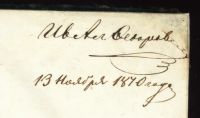 Ив Ал Ѳедоров
13 Ноября 1870 года